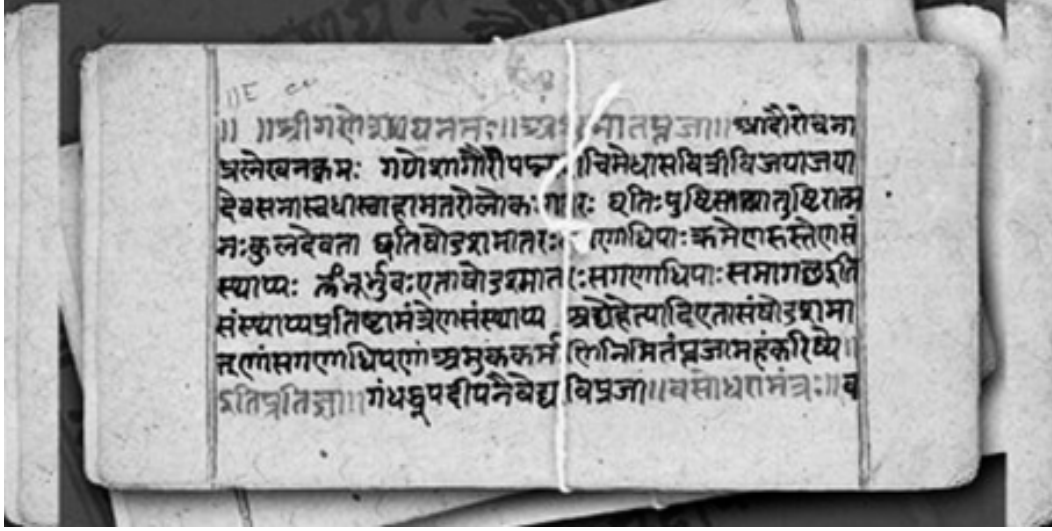 ॥ ॥श्रीगणेशायनमः॥अथमातृपूजा॥आदौरोचना
प्रलेखनक्रमः गणेशागौरीपद्मा चिमेधासवित्रीविजयाजया
देवसेनास्वधास्वाहामातरोलोकमातरः धृतिःपुष्टिस्तथातुष्टिरात्म
नःकुलदेवता षोडशमातरः गणाधिपाःक्रमेणहस्तेणसं
स्थाप्यः भूर्भुवःएताषोडशमातरःसगणाधिपाःसमागछइति
संस्थाप्यप्रतिष्टामंत्रेणसंस्थाप्य अद्येहेत्यादिएतासंषोडशमा
तृणांसगणाधिपणांअमुककर्म णिनिमितंपूजामहंकरिष्ये॥
इतिप्रतिज्ञा॥गंधधूपदीपनैवेद्य विपूजा॥वसोधारामंत्रः॥व